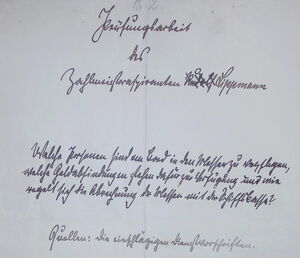 Prüfungsarbeit
des
Zahlmeisteraspiranten Lippmann
Welche Personen sind an Bord in den Messen zu verpflegen,
welche Geldabfindungen stehen dafür zur Verfügung und wie
regelt sich die Abrechnung der Messen mit der Schiffskasse?
Quellen: die einschlägigen Dienstvorschriften.